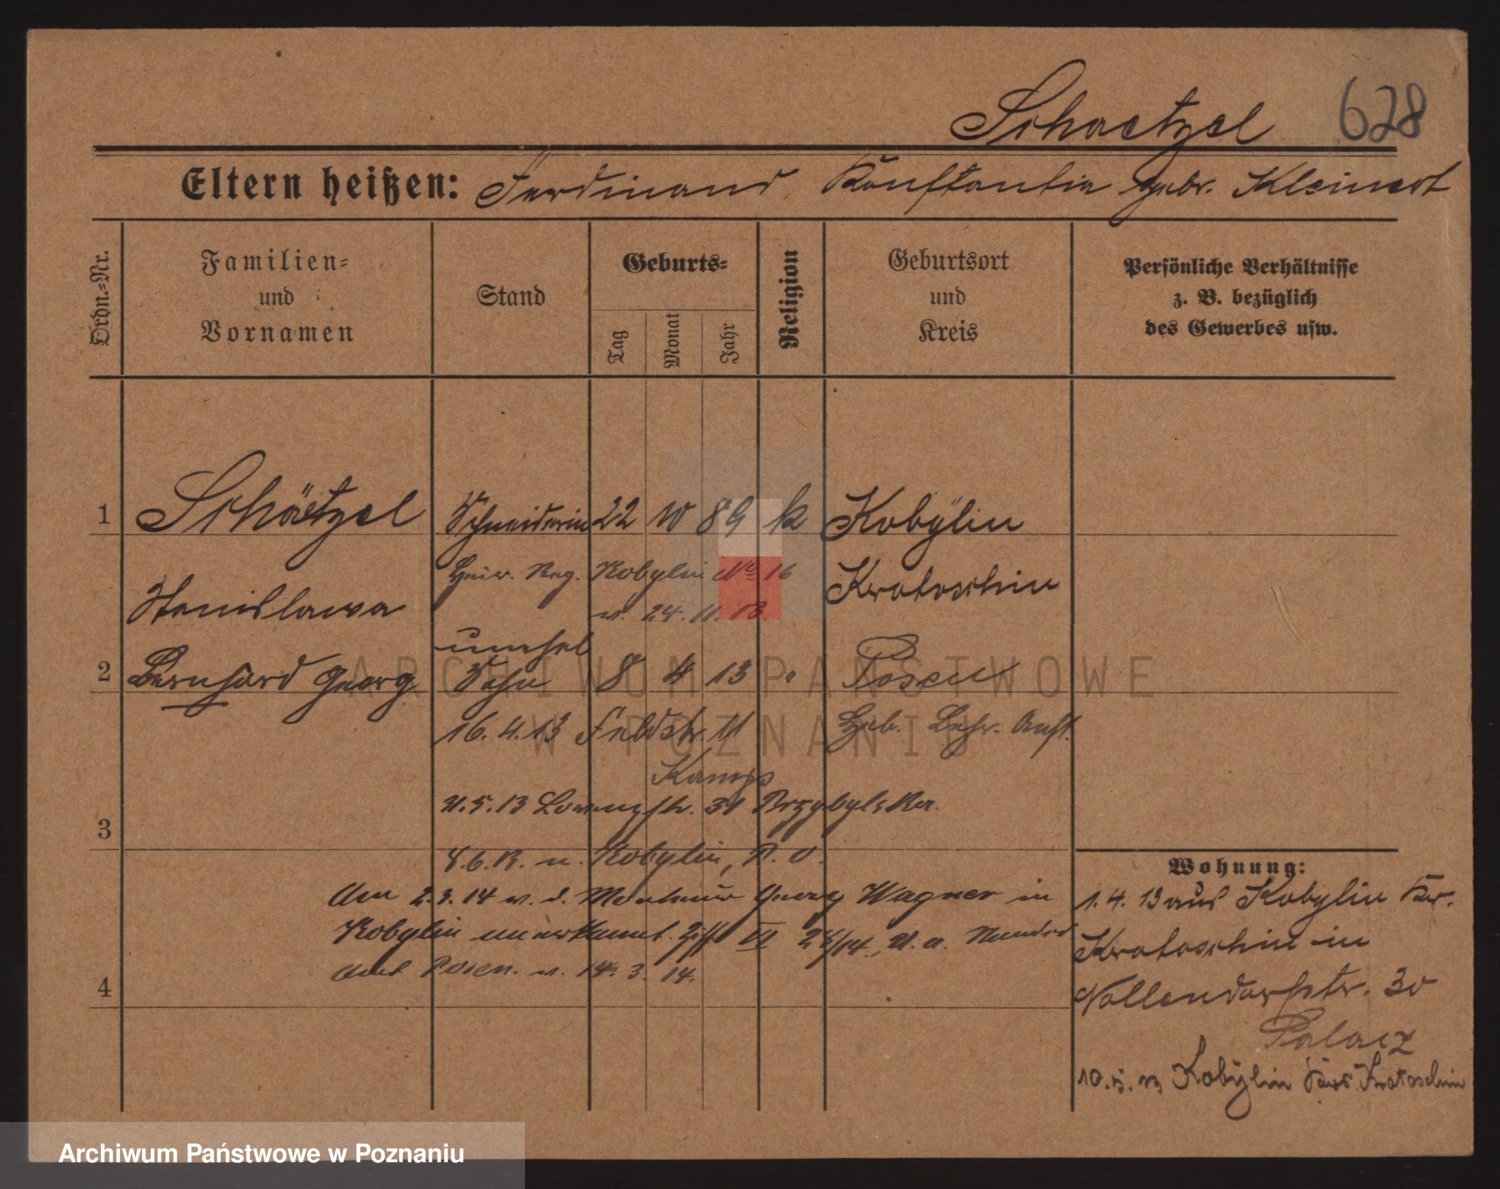 Schaetzel 628
Eltern heißen: Ferdinand, Konstantia gebr. Kleinert
Ordn.-Nr.
Familien-
und
Vornamen
Stand
Geburts-
Tag
Monat
Jahr
Religion
Geburtsort
und
Kreis
Persönliche Verhältnisse
z. B. bezüglich
des Gewerbes usw.
1 Schaetzel Schneiderin 22 10 89 k Kobylin
Heir. Reg. Kobylin No 16
v. 24. 11. 13.
Krotoschin
Stanislawa
unehel
2 Bernhard Georg Sohn 8 4 13 " Posen
16. 4. 13 Feldstr. 11
Geb.
21. 5. 13 Lorenzstr. 31 Przybylska
3
8. 6. 13. n. Kobylin,
Am 2. 3. 14 v. d. Georg Wagner in
Kobylin anerkannt. VI 28/14.
Amt Posen. v. 14. 3. 14.
4
Wohnung:
1. 4. 13 aus Kobylin Kr.
Krotoschin in
Nollendorfstr. 30
Palacz
10. 5. 13 Kobylin Krs. Krotoschin
ARCHIWUM PAŃSTWOWE
W POZNANIU
Archiwum Państwowe w Poznaniu